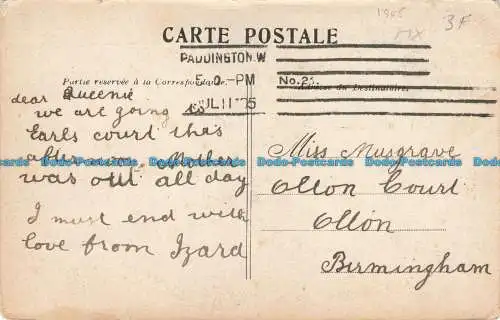 1905
3F
CARTE POSTALE
PADDINGTON.W
5.0.-PM No.2
JUL 11 05
Partie reservée à la Correspondance.
Adresse du Destinataire.
dear Queenie
we are going to
Earls court this
afternoon Mother
was out all day
I must end with
love from Izard
Miss Musgrave
Olton Court
Olton
Birmingham
Dodo-Postcards Dodo-Postcards Dodo-Postcards Dodo-Postcards Dodo-Postcards